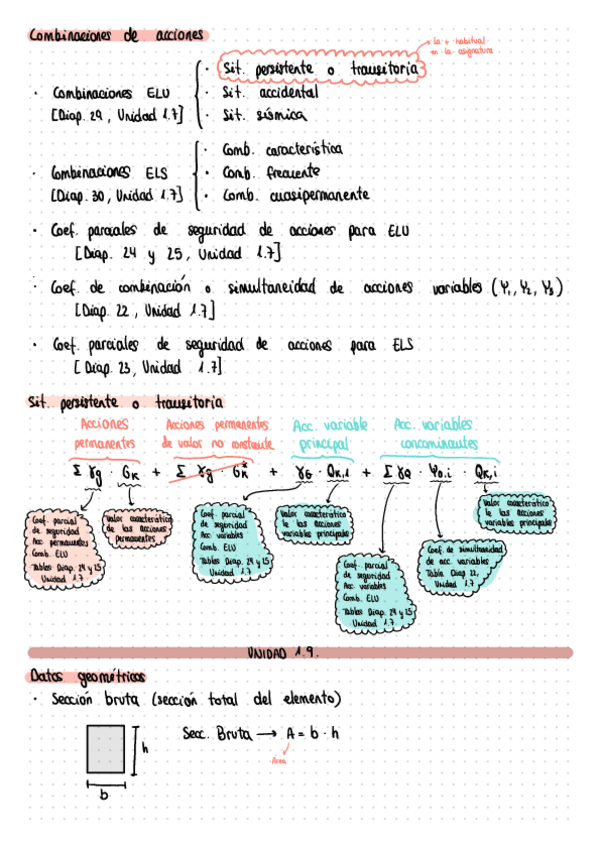 Combinaciones de acciones
la + habitual
en la asignatura
· Sit. persistente o transitoria
· Combinaciones ELU
[Diap. 29, Unidad 1.7]
· Sit. accidental
· Sit. sísmica
· Combinaciones ELS
[Diap. 30, Unidad 1.7]
· Comb. característica
· Comb. frecuente
· Comb. cuasipermanente
· Coef. parciales de seguridad de acciones para ELU
[Diap. 24 y 25, Unidad 1.7]
· Coef. de combinación o simultaneidad de acciones variables (Ψ₁, Ψ₂, Ψ₃)
[Diap. 22, Unidad 1.7]
· Coef. parciales de seguridad de acciones para ELS
[Diap. 23, Unidad 1.7]
Sit. persistente o transitoria
Acciones permanentes
Acciones permanentes de valor no constante
Acc. variable principal
Acc. variables concomitantes
Σ γg · GK + Σ γg · GK* + γG · QK,1 + Σ γQ · Ψ0,i · QK,i
Coef. parcial
de seguridad
Acc. permanentes
Comb. ELU
Tablas Diap. 24 y 25
Unidad 1.7
Valor característico
de las acciones
permanentes
Coef. parcial
de seguridad
Acc. variables
Comb. ELU
Tablas Diap. 24 y 25
Unidad 1.7
Valor característico
de las acciones
variables principales
Coef. parcial
de seguridad
Acc. variables
Comb. ELU
Tablas Diap. 24 y 25
Unidad 1.7
Coef. de simultaneidad
de acc. variables
Tabla Diap 22,
Unidad 1.7
Valor característico
de las acciones
variables principales
UNIDAD 1.9.
Datos geométricos
· Sección bruta (sección total del elemento)
Secc. Bruta → A = b · h
Área
h
b